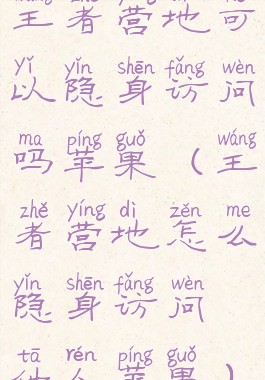 王者营地可
yǐ yǐn shēn fǎng wèn
以隐身访问
ma píng guǒ wáng
吗苹果（王
zhě yíng dì zěn me
者营地怎么
yǐn shēn fǎng wèn
隐身访问
tā rén píng guǒ
他人苹果）